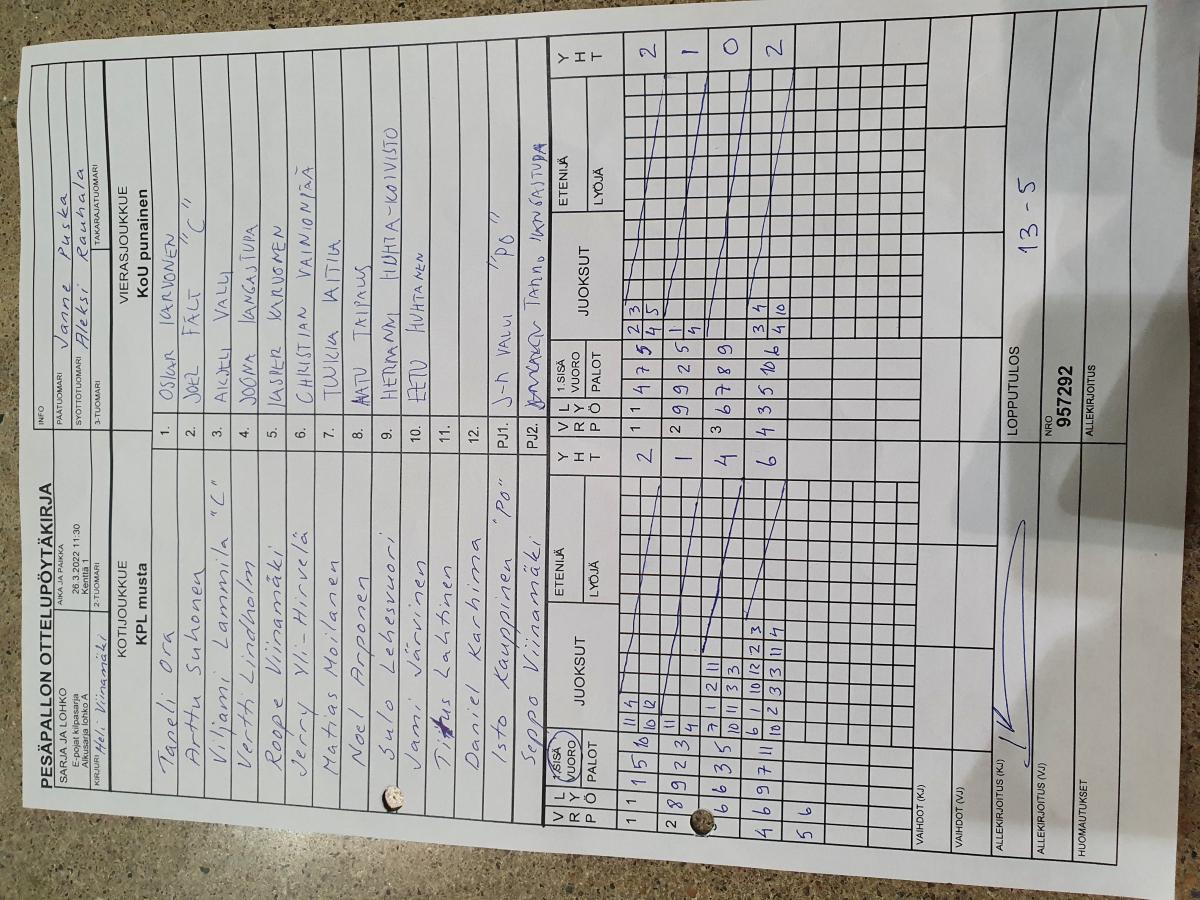 PESÄPALLON OTTELUPÖYTÄKIRJA
SARJA JA LOHKO
E-pojat kilpasarja
Alkusarja lohko A
AIKA JA PAIKKA
26.3.2022 11:30
Kenttä 1
INFO
PÄÄTUOMARI Janne Puska
SYÖTTÖTUOMARI Aleksi Rauhala
KIRJURI Heli Viinamäki
2-TUOMARI
3-TUOMARI
TAKARAJATUOMARI
KOTIJOUKKUE
KPL musta
VIERASJOUKKUE
KoU punainen
Taneli Ora 1. OSKAR KARVONEN
Arttu Suhonen 2. JOEL FÄLT "C"
Viljami Lammila "C" 3. AKSELI VALLI
Vertti Lindholm 4. JOONA KANGASTUPA
Roope Viinamäki 5. KASPER KARVONEN
Jerry Yli-Hirvelä 6. CHRISTIAN VAINIONPÄÄ
Matias Moilanen 7. TUUKKA KITILÄ
Noel Arponen 8. AATU TAIPALUS
Sulo Lehesvuori 9. HERMANNI HUHTA-KOIVISTO
Jami Järvinen 10. EETU HUHTANEN
Titus Lahtinen 11.
Daniel Karhima 12.
Isto Kauppinen "PO" PJ1. J-P VALLI "PO"
Seppo Viinamäki PJ2. KANGASTUPA
V R Ö L Y P 1.SISÄ VUORO PALOT JUOKSUT ETENIJÄ LYÖJÄ Y H T V R Ö L Y P 1.SISÄ VUORO PALOT JUOKSUT ETENIJÄ LYÖJÄ Y H T
1 1 1 5 10 11 4 2 1 1 4 7 5 2 3 2
10 12 4 5
2 8 9 2 3 11 1 2 9 9 2 5 1 1
4 4
6 6 3 5 7 1 2 11 4 3 6 7 8 9 0
10 11 3 3
4 6 9 7 11 6 1 10 12 2 3 6 4 3 5 10 6 3 4 2
10 2 3 3 11 4 4 10
5 6
VAIHDOT (KJ)
VAIHDOT (VJ)
ALLEKIRJOITUS (KJ)
LOPPUTULOS 13-5
ALLEKIRJOITUS (VJ)
NRO
957292
HUOMAUTUKSET
ALLEKIRJOITUS